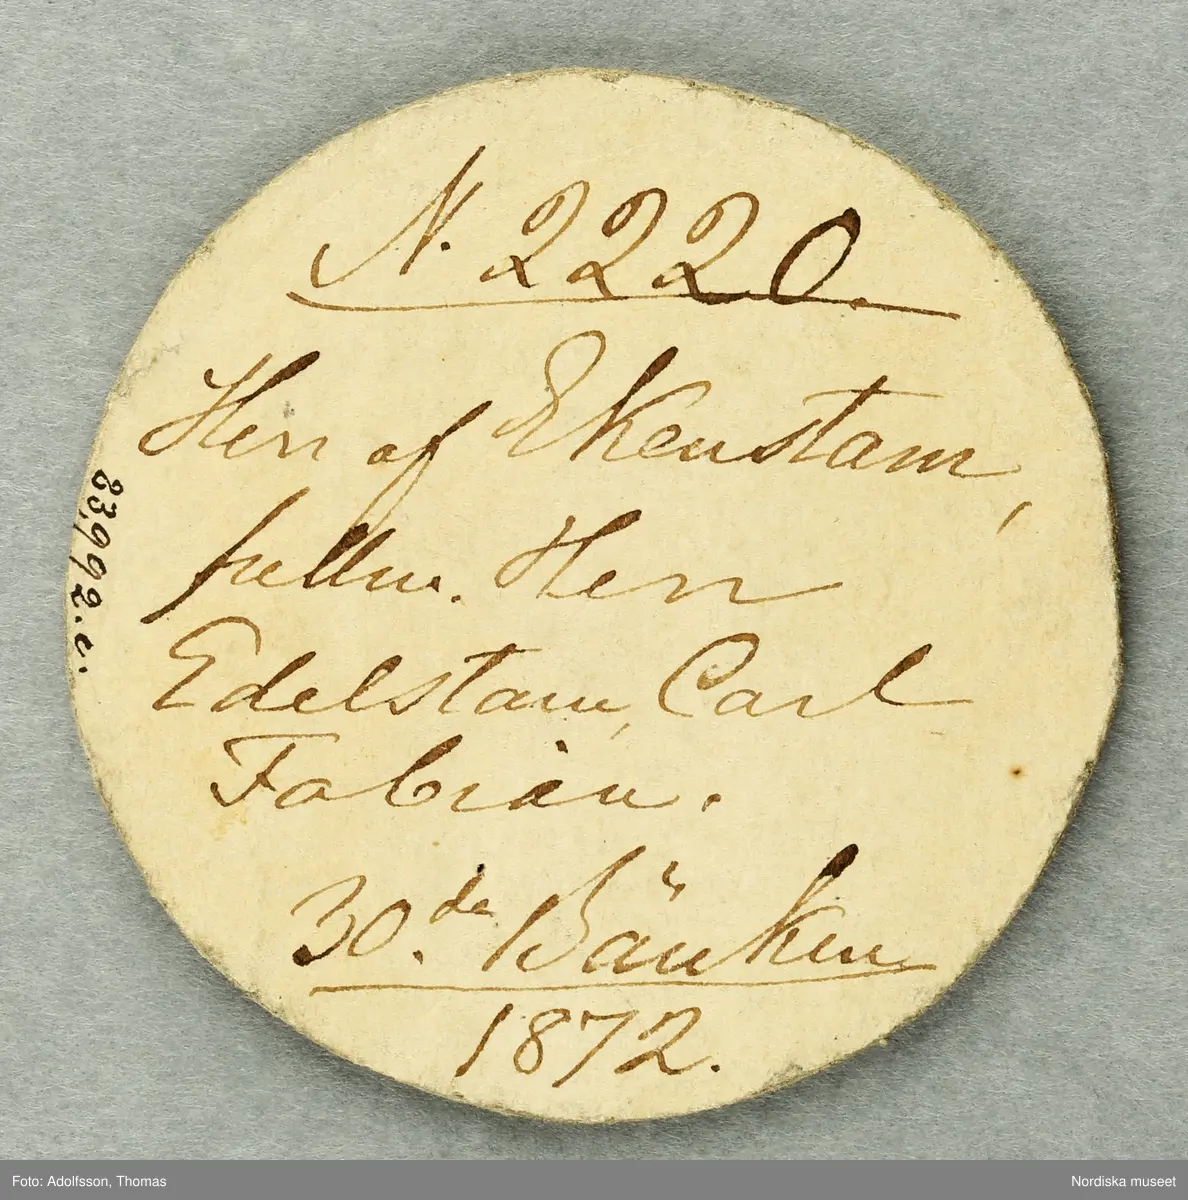 N. 2220.
Herr af Ekenstam,
fullm. Herr
Edelstam, Carl
Fabian.
30.de Bänken
1872.
83992.c.
Foto: Adolfsson, Thomas
Nordiska museet